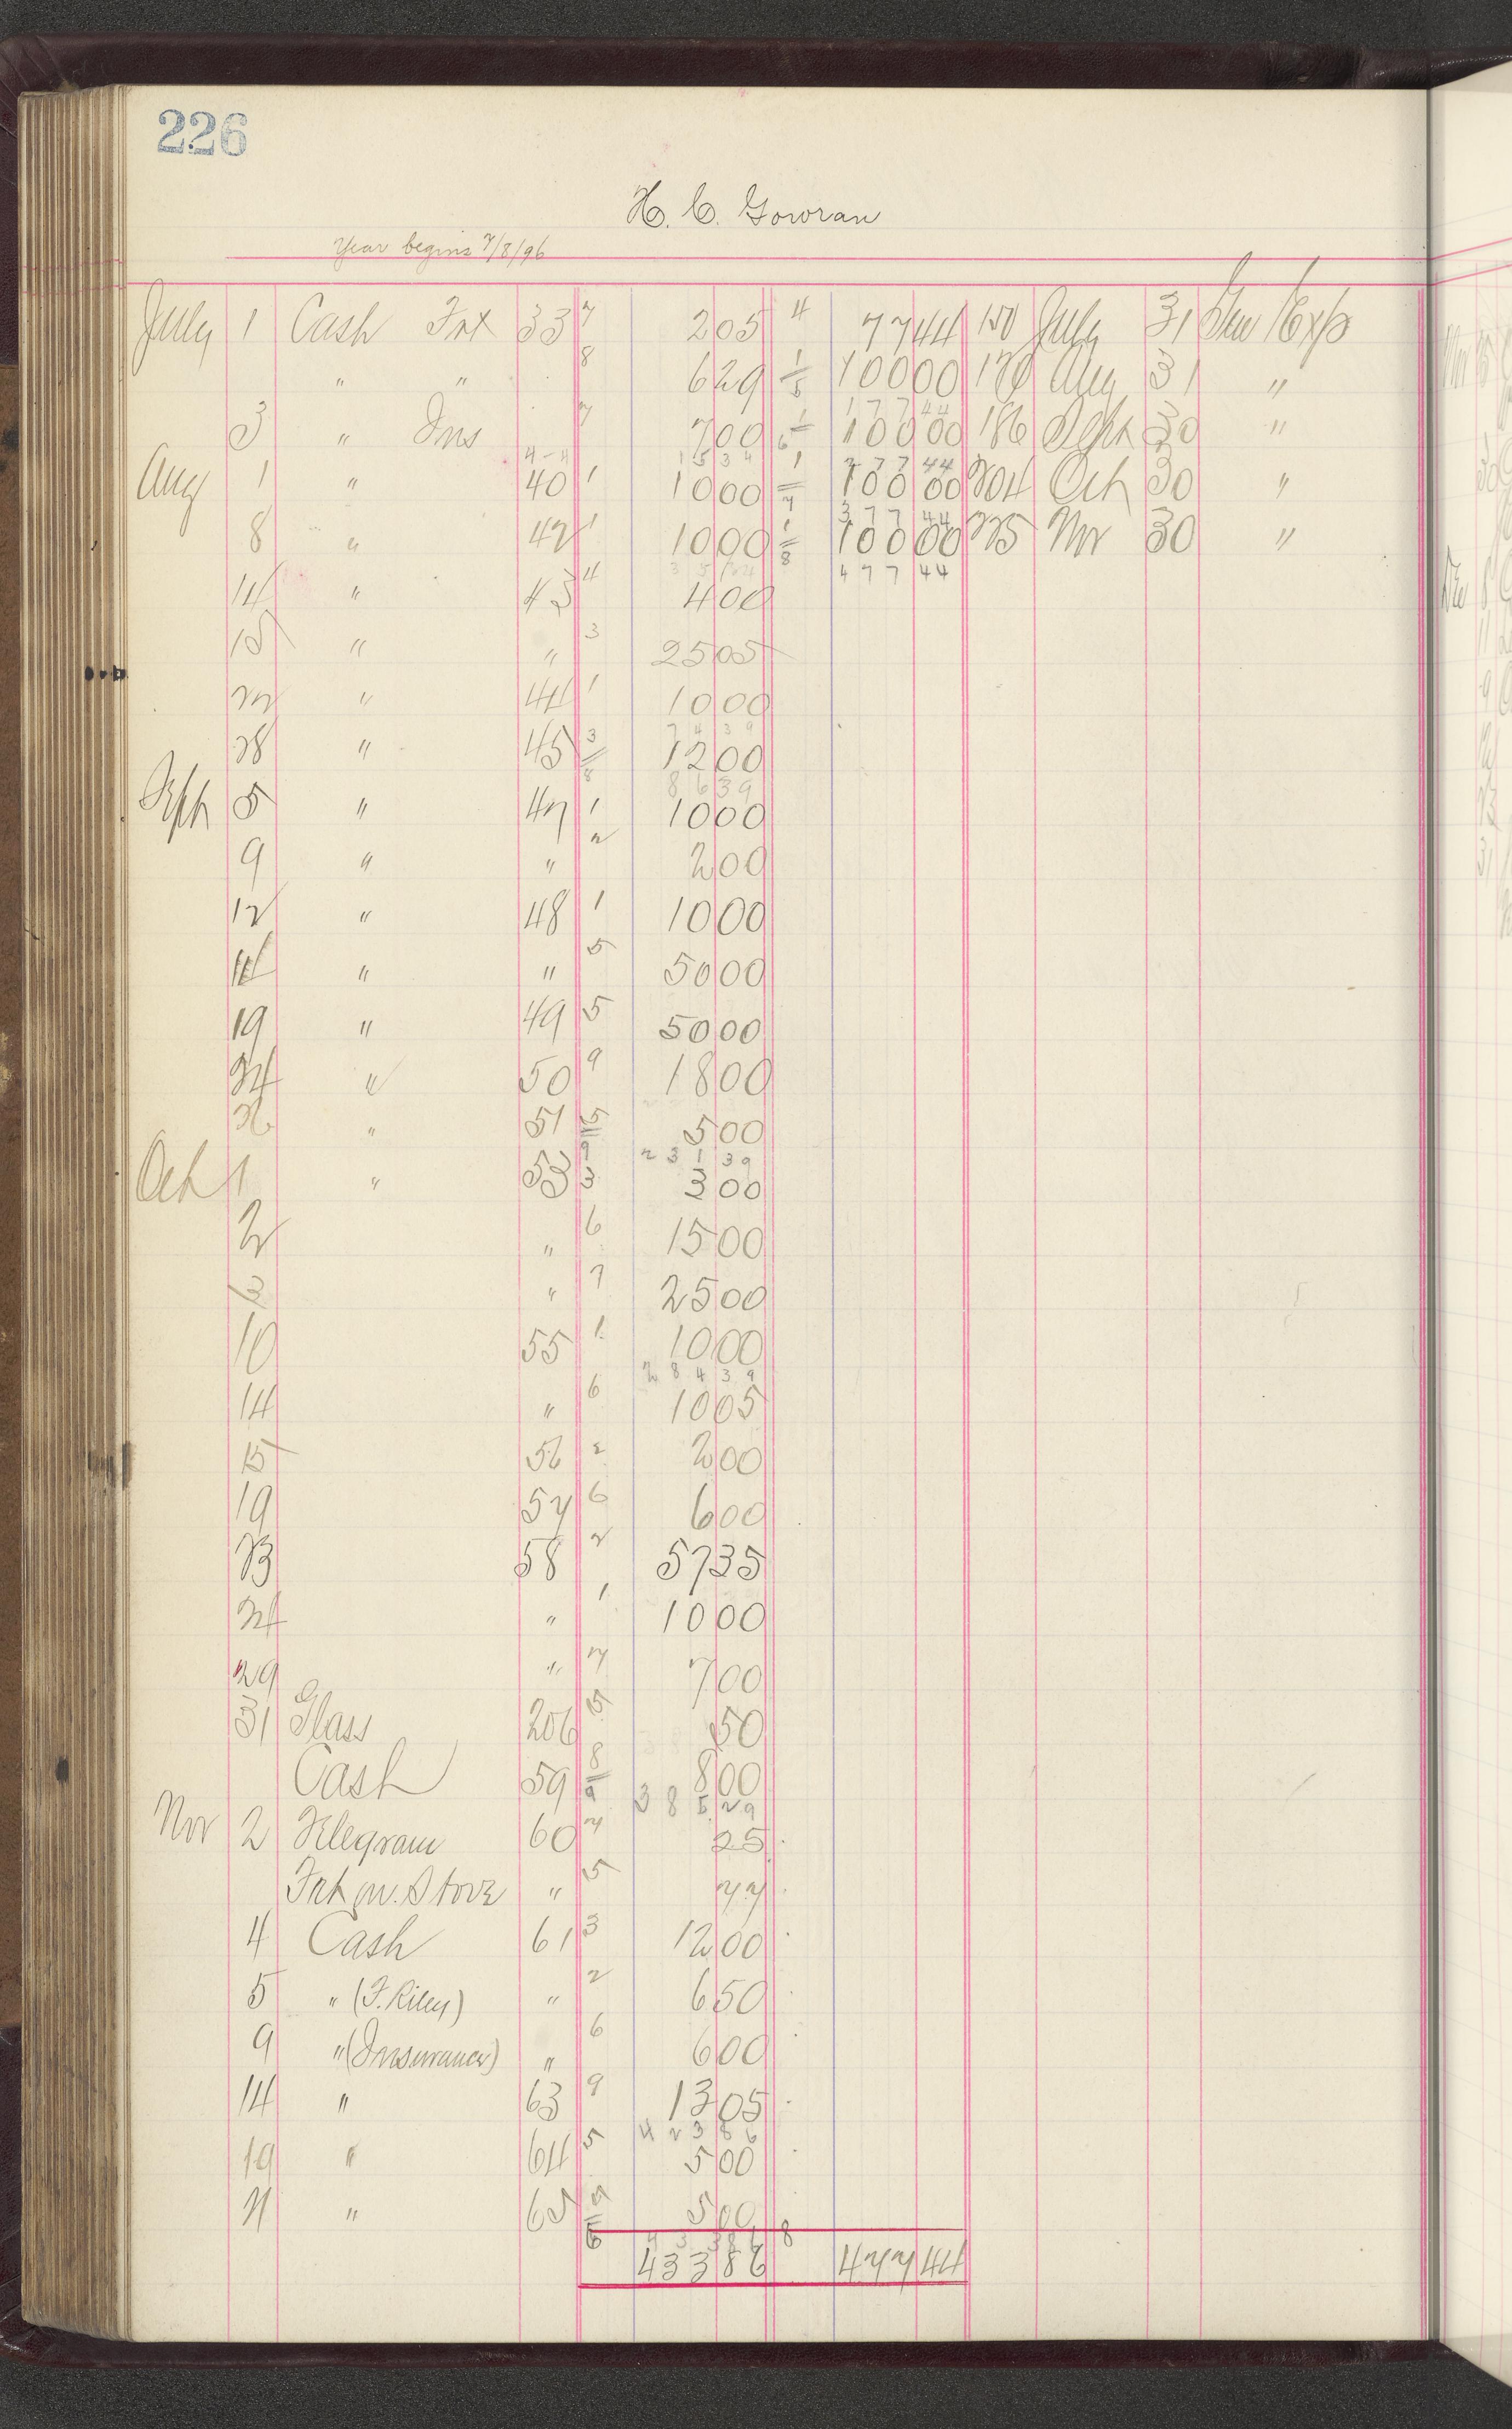 226
H. C. Gowran
Year begins 7/8/96
July 1 Cash Frt 33 7 2 05 4 77 44 150 July 31 Gen Exp
" " 8 6 29 1/5 100 00 170 Aug 31 "
177 44
3 " Ins 7 7 00 1/6 100 00 186 Sept 30 "
4-4 15 34 277 44
Aug 1 " 40 1 10 00 1/7 100 00 204 Oct 30 "
377 44
8 " 42 1 10 00 1/8 100 00 225 Nov 30 "
35 34 477 44
14 " 43 4 4 00
15 " " 3 25 05
22 " 44 1 10 00
74 39
28 " 45 3/8 12 00
86 39
Sept 5 " 47 1 10 00
9 " " 2 2 00
12 " 48 1 10 00
14 " " 5 50 00
19 " 49 5 50 00
24 " 50 9 18 00
26 " 51 5/9 5 00
231 39
Oct 1 " 53 3 3 00
2 " 6 15 00
3 " 7 25 00
10 55 1 10 00
284 39
14 " 6 10 05
15 56 2 2 00
19 57 6 6 00
23 58 2 57 35
24 " 1 10 00
29 " 7 7 00
31 Glass 206 5 50
Cash 59 8/9 8 00
385 29
Nov 2 Telegram 60 7 25
Frt on Stove " 5 77
4 Cash 61 3 12 00
5 " (F. Riley) " 2 6 50
9 " (Insurance) " 6 6 00
14 " 63 9 13 05
423 86
19 " 64 5 5 00
21 " 65 9/6 5 00
433 86 8
433 86 477 44